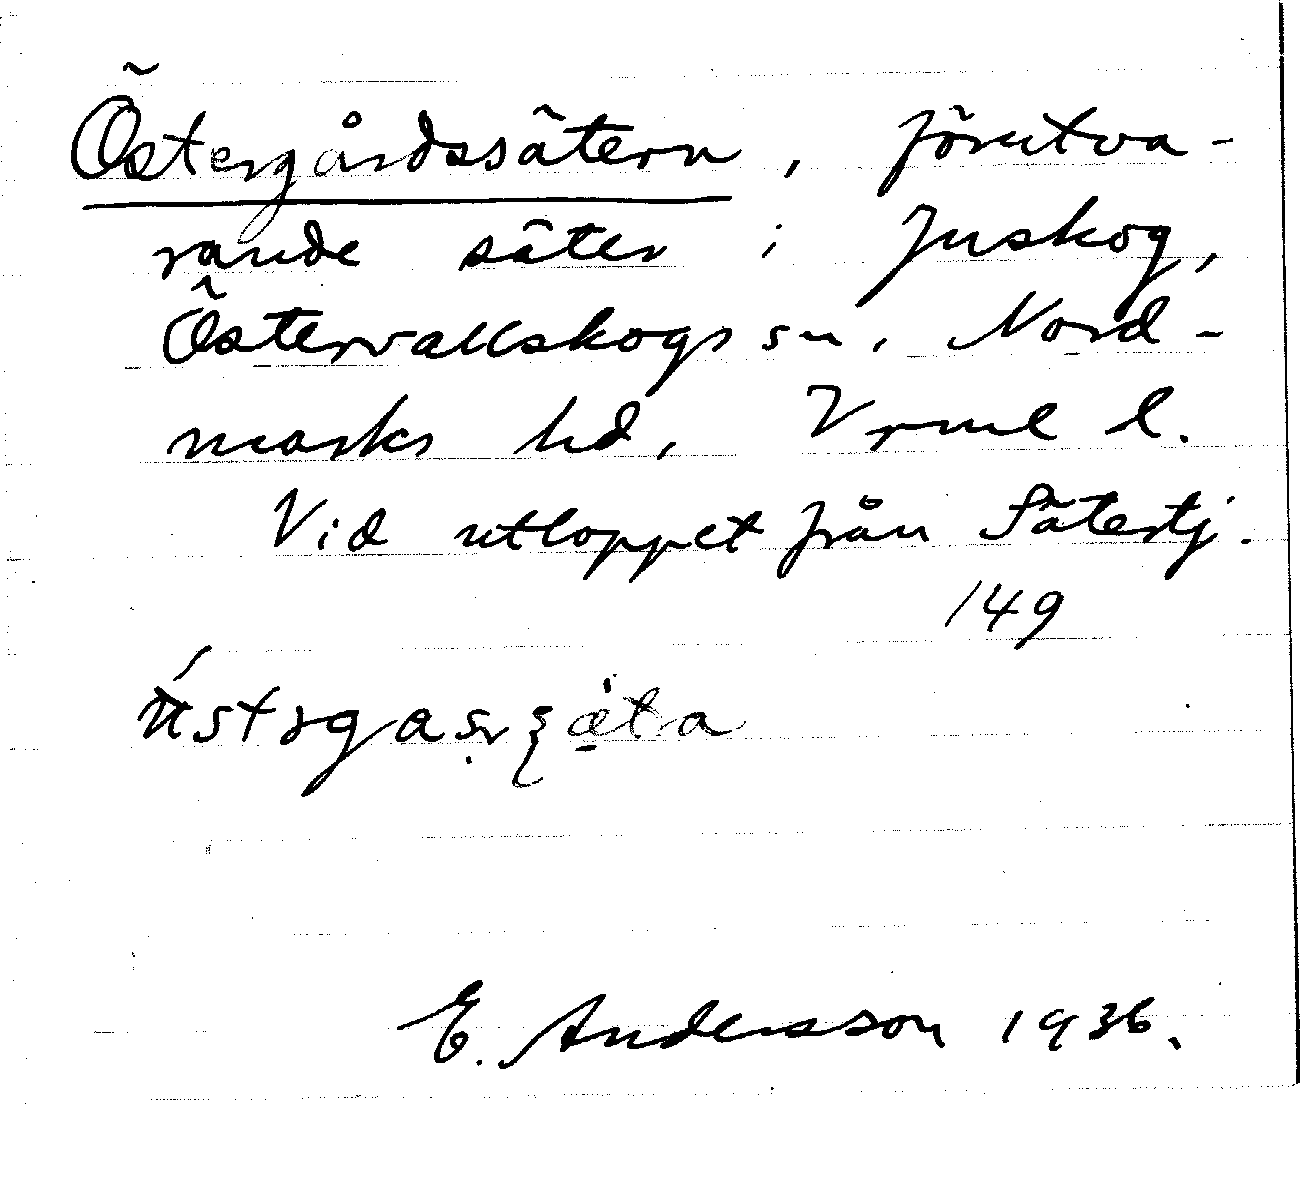 Östergårdssätern, förutva-
rande säter i Juskog,
Östervallskogs sn, Nord-
marks hd, Vrml l.
Vid utloppet från Sätertj.
149
E. Andersson 1936.